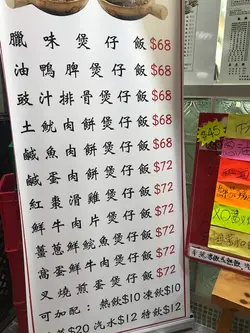 臘味煲仔飯$68
油鴨脾煲仔飯$68
豉汁排骨煲仔飯$68
土魷肉餅煲仔飯$68
鹹魚肉餅煲仔飯$68
鹹蛋肉餅煲仔飯$72
紅棗滑雞煲仔飯$72
鮮牛肉片煲仔飯$72
薑蔥鮮魷魚煲仔飯$72
窩蛋鮮牛肉煲仔飯$72
叉燒煎蛋煲仔飯$72
可加配：熱飲$10凍飲$10
$20汽水$12特飲$12
$45